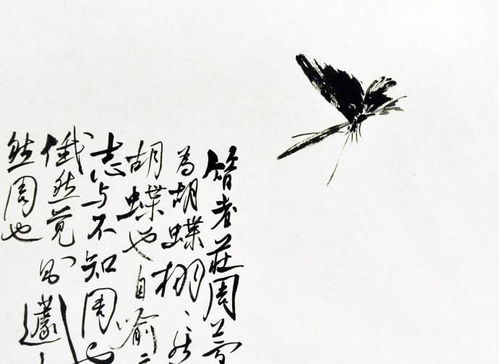 昔者莊周夢
为胡蝶栩〻然
胡蝶也自喻
志与不知周也
俄然覚則蘧
然周也